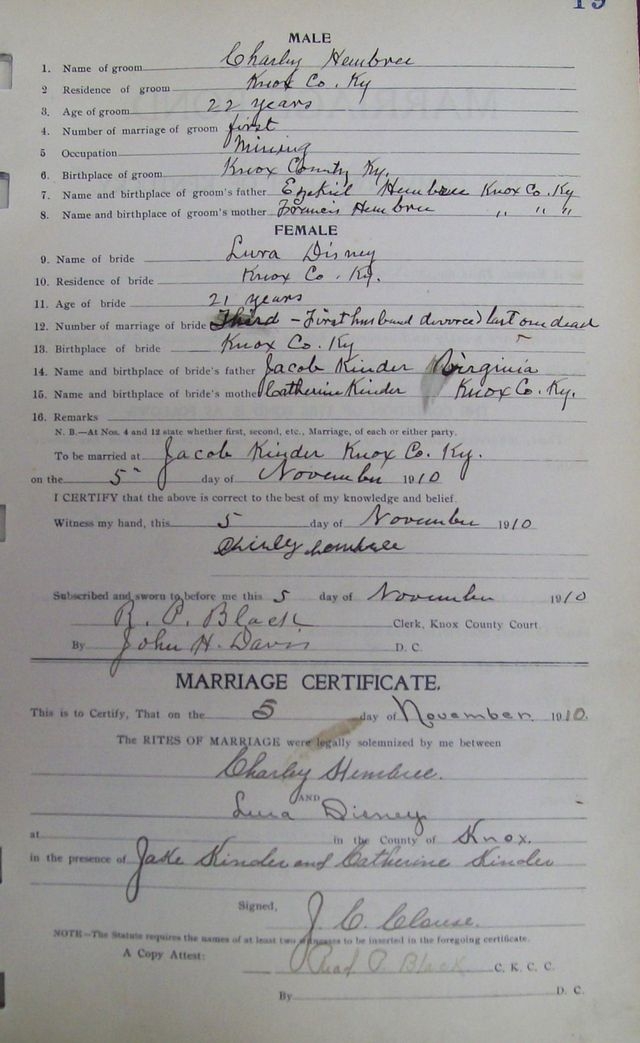 19
MALE
1. Name of groom Charley Hembree
2 Residence of groom Knox Co. Ky
3. Age of groom 22 years
4. Number of marriage of groom first
5 Occupation Mining
6. Birthplace of groom Knox County Ky.
7. Name and birthplace of groom's father Ezekiel Hembree Knox Co. Ky
8. Name and birthplace of groom's mother Francis Hembree " " "
FEMALE
9. Name of bride Lura Disney
10. Residence of bride Knox Co. Ky.
11. Age of bride 21 years
12. Number of marriage of bride Third - First husband divorced last one dead
13. Birthplace of bride Knox Co. Ky
14. Name and birthplace of bride's father Jacob Kinder Virginia
15. Name and birthplace of bride's mother Catherine Kinder Knox Co. Ky.
16. Remarks
N. B.—At Nos. 4 and 12 state whether first, second, etc., Marriage, of each or either party.
To be married at Jacob Kinder Knox Co. Ky.
on the 5" day of November 1910
I CERTIFY that the above is correct to the best of my knowledge and belief.
Witness my hand, this 5 day of November 1910
hembree
Subscribed and sworn to before me this 5 day of November 1910
R. P. Black Clerk, Knox County Court
By John H. Davis D. C.
MARRIAGE CERTIFICATE.
This is to Certify, That on the 5 day of November 1910.
The RITES OF MARRIAGE were legally solemnized by me between
Charley Hembree.
AND
Lura Disney
at in the County of Knox.
in the presence of Jake Kinder and Catherine Kinder
Signed, J. C. Clouse.
NOTE—The Statute requires the names of at least two witnesses to be inserted in the foregoing certificate.
A Copy Attest: Read P. Black C. K. C. C.
By D. C.